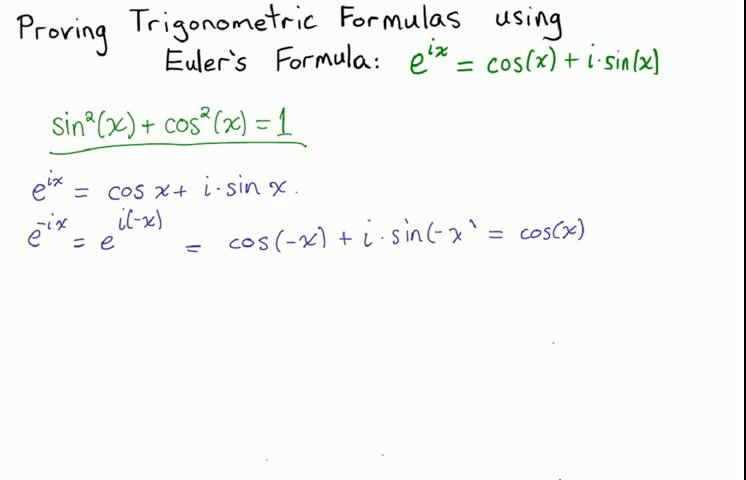 Proving Trigonometric Formulas using
Euler's Formula: e^{ix} = cos(x) + i·sin(x)
sin²(x) + cos²(x) = 1
e^{ix} = cos x + i·sin x.
e^{-ix} = e^{i(-x)} = cos(-x) + i·sin(-x` = cos(x)